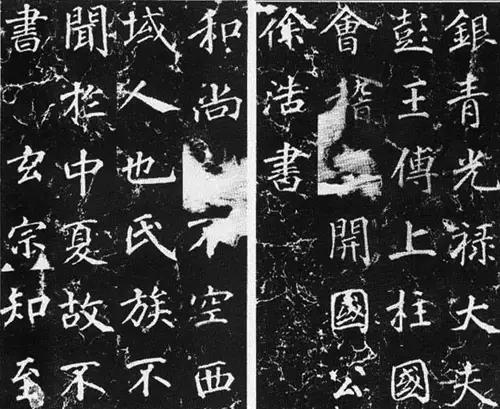 銀青光禄大夫
彭王傅上柱國
會稽開國公
徐浩書
和尚不空西
域人也氏族不
聞扵中夏故不
書玄宗知至